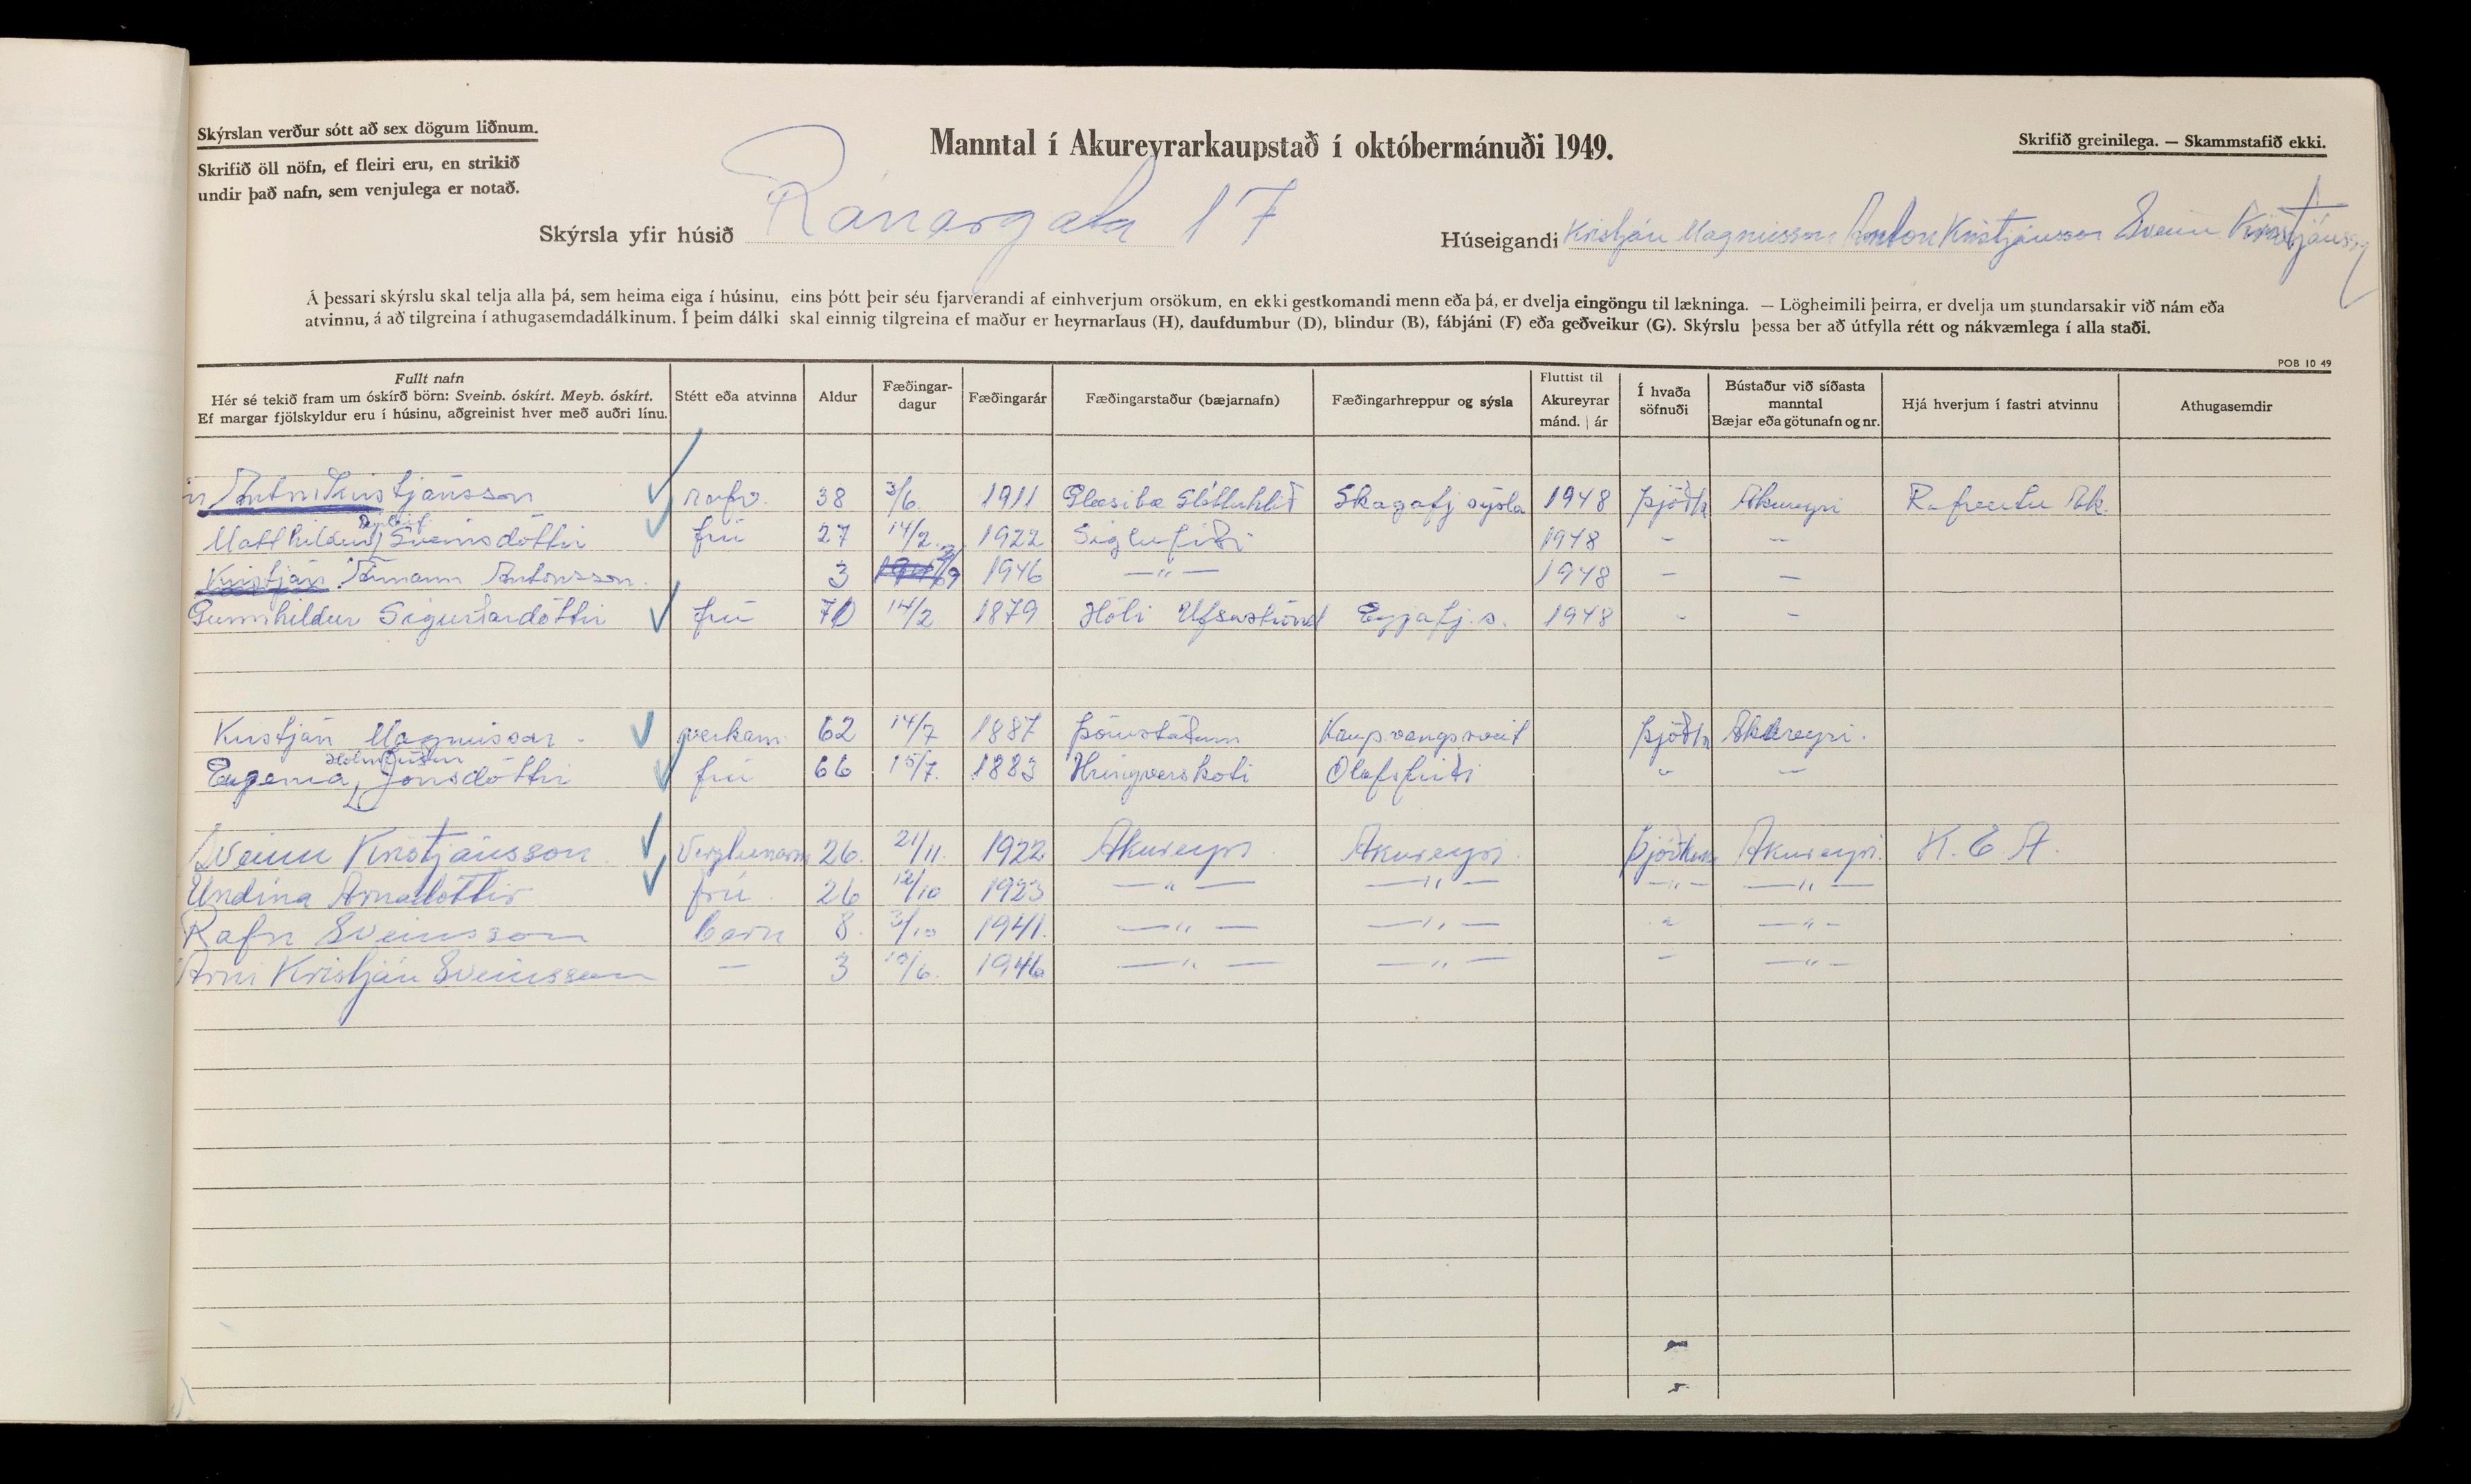 Skýrslan verður sótt að sex dögum liðnum.
Skrifið öll nöfn, ef fleiri eru, en strikið
undir það nafn, sem venjulega er notað.
Manntal í Akureyrarkaupstað í októbermánuði 1949.
Skrifið greinilega. — Skammstafið ekki.
Skýrsla yfir húsið Ránargata 17
Húseigandi Kristján Magnússon Anton Kristjánsson Sveinn Kristjánsson
Á þessari skýrslu skal telja alla þá, sem heima eiga í húsinu, eins þótt þeir séu fjarverandi af einhverjum orsökum, en ekki gestkomandi menn eða þá, er dvelja eingöngu til lækninga. — Lögheimili þeirra, er dvelja um stundarsakir við nám eða
atvinnu, á að tilgreina í athugasemdadálkinum. Í þeim dálki skal einnig tilgreina ef maður er heyrnarlaus (H), daufdumbur (D), blindur (B), fábjáni (F) eða geðveikur (G). Skýrslu þessa ber að útfylla rétt og nákvæmlega í alla staði.
POB 10 49
Fullt nafn
Hér sé tekið fram um óskírð börn: Sveinb. óskírt. Meyb. óskírt.
Ef margar fjölskyldur eru í húsinu, aðgreinist hver með auðri línu.
Stétt eða atvinna
Aldur
Fæðingar-
dagur
Fæðingarár
Fæðingarstaður (bæjarnafn)
Fæðingarhreppur og sýsla
Fluttist til
Akureyrar
mánd. | ár
Í hvaða
söfnuði
Bústaður við síðasta
manntal
Bæjar eða götunafn og nr.
Hjá hverjum í fastri atvinnu
Athugasemdir
Anton Kristjánsson rafv. 38 3/6 1911 Glæsibæ Sléttuhlíð Skagafj sýsla 1948 Þjóðk Akureyri Rafveitu Ak.
Matthildur Sveinsdóttir frú 27 14/2 1922 Siglufirði 1948 - -
Kristján Antonsson 3 1946 —"— 1948 - —
Gunnhildur Sigurðardóttir frú 70 14/2 1879 Hóli Ufsaströnd Eyjafj.s. 1948 - -
Kristján Magnússon verkam. 62 14/7 1887 Þórustöðum Kaupvangssveit Þjóðk Akureyri.
Hólmfríður
Eugenia, Jónsdóttir frú 66 15/7 1883 Hringverskoti Ólafsfirði " —
Sveinn Kristjánsson Verzlunarm 26. 21/11. 1922 Akureyri Akureyri. Þjóðk Akureyri. K. E. A.
Undína Árnadóttir frú 26 12/10 1923 —"— —"— —"— —"—
Rafn Sveinsson barn 8. 3/10 1941. —"— —"— " —"—
Árni Kristján Sveinsson — 3 /6. 1946 —"— —"— - —"—